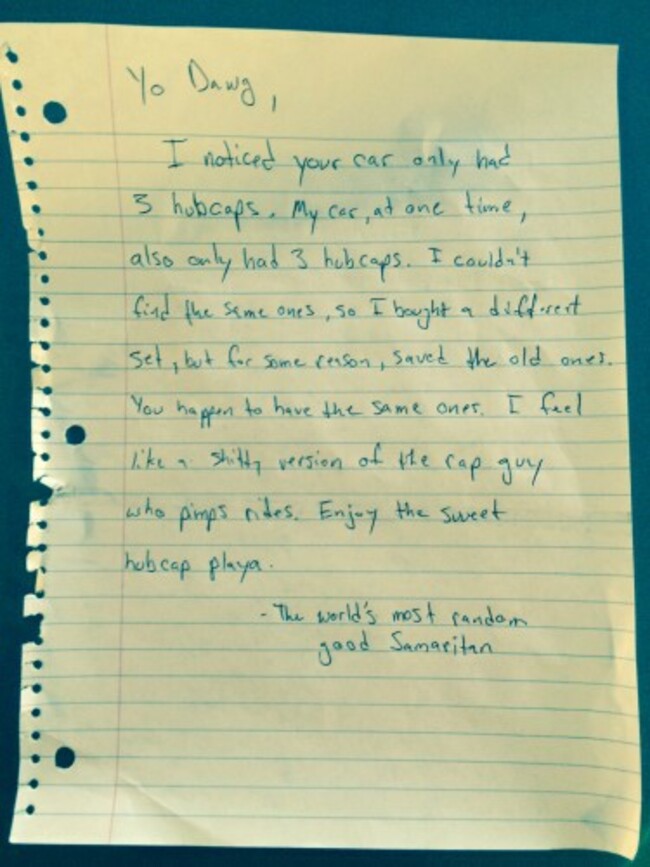 Yo Dawg,
I noticed your car only had
3 hubcaps. My car, at one time,
also only had 3 hubcaps. I couldn't
find the same ones, so I bought a different
set, but for some reason, saved the old ones.
You happen to have the same ones. I feel
like a shitty version of the rap guy
who pimps rides. Enjoy the sweet
hubcap playa.
- The world's most random
good Samaritan